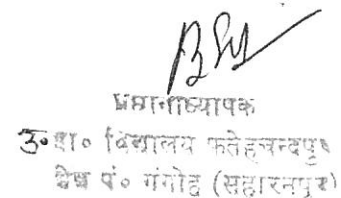 प्रधानाध्यापक
उ०प्रा० विद्यालय फतेहचन्दपुर
पं० गंगोह (सहारनपुर)